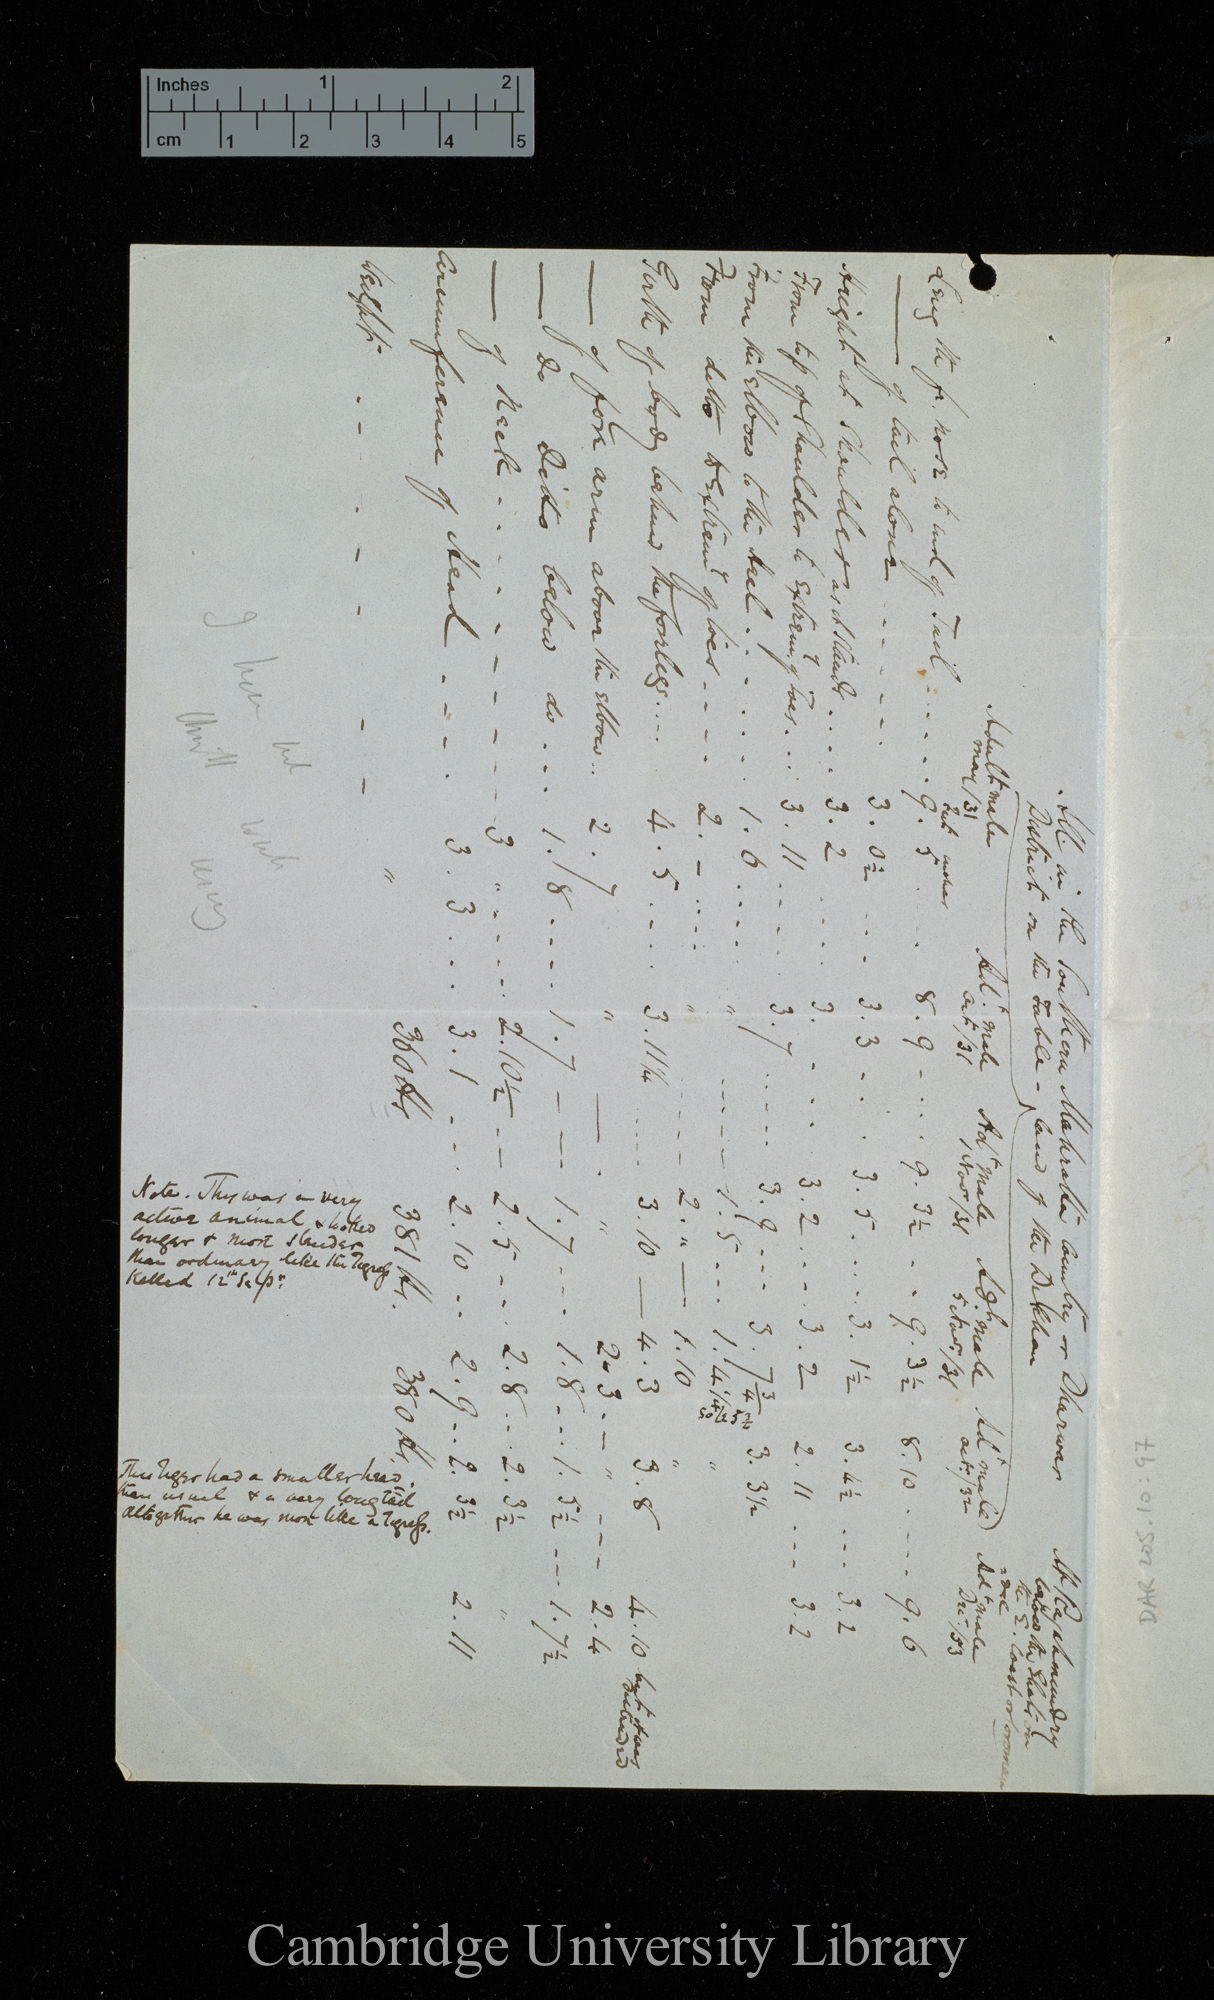 Inches 1 2
cm 1 2 3 4 5
DAR 205.10:97
All in the Southern Mahratta Country or Dharwar
District on the Table-land of the Dekhan
At Rajahmundry
below the Ghats on
the E. Coast or
Adult male
May/31
Ad. male
Oct/31
Ad. male
Nov/31
Ad. male
5 Nov./31
Ad. male
Oct/32
Ad. male
Dec/33
feet inches
Length fr. nose to end of Tail .... 9. 5 ... 8. 9 .... 9. 3½ .. 9. 3½ 8. 10 .... 9. 6
—— of tail alone ..... 3. 0½ ... 3. 3 .... 3. 5 .... 3. 1½ 3. 4½ .... 3. 2
Height at Shoulder as it stands .... 3. 2 .... 3. .... 3. 2 .... 3. 2 2. 11 .... 3. 2
From tip of Shoulder to extremy. of toes ... 3. 11 .... 3. 7 .... 3. 9 ... 3. 7¾ 3. 3½
From the elbow to the heel ..... 1. 6 .... " .... 1. 5 ... 1. 4¼ "
From ditto to extremy. of toes .... 2. - .... " .... 2. " — 1. 10 "
Girth of body behind the forelegs .... 4. 5 .... 3. 11¼ .... 3. 10 — 4. 3 3. 8 4. 10
—— of fore arm above the elbow .. 2. 7 " — . " 2. 3 . — " ... 2. 4
—— Do Ditto below do ... 1. 8 .... 1. 7 — — 1. 7 ... 1. 8 ... 1. 5½ ... 1. 7½
—— of Neck ...... 3 " .... 2. 10½ — — 2. 5 ... 2. 8 ... 2. 3½ "
Circumference of Head .... 3. 3 ... 3. 1 .... 2. 10 .. 2. 9 .. 2. 3½ 2. 11
Weight - - - - - - " 360 lbs 381 lbs. 380 lbs.
Note. This was a very
active animal & looked
longer & more slender
than ordinary like the Tigress
killed 12th Sepr.
This Tiger had a smaller head
than usual & a very long tail
altogether he was more like a Tigress.
Cambridge University Library